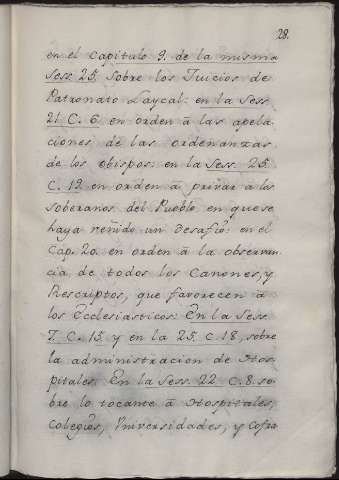 28.
en el Capitulo 9. de la misma
Sess. 25. sobre los Juicios de
Patronato Laycal: en la Sess.
21 C. 6 en orden à las apela
ciones de las ordenanzas
de los obispos: en la Sess. 25
C. 19 en orden à privar à los
soberanos del Pueblo en que se
haya reñido un desafio: en el
Cap. 20. en orden à la observan
cia de todos los Canones, y
Rescriptos, que favorecen à
los Ecclesiasticos: En la Sess.
7. C. 15 y en la 25. C. 18, sobre
la administracion de Hos
pitales. En la Sess. 22. C. 8. so
bre lo tocante à Hospitales,
Colegios, Vniversidades, y Cofra